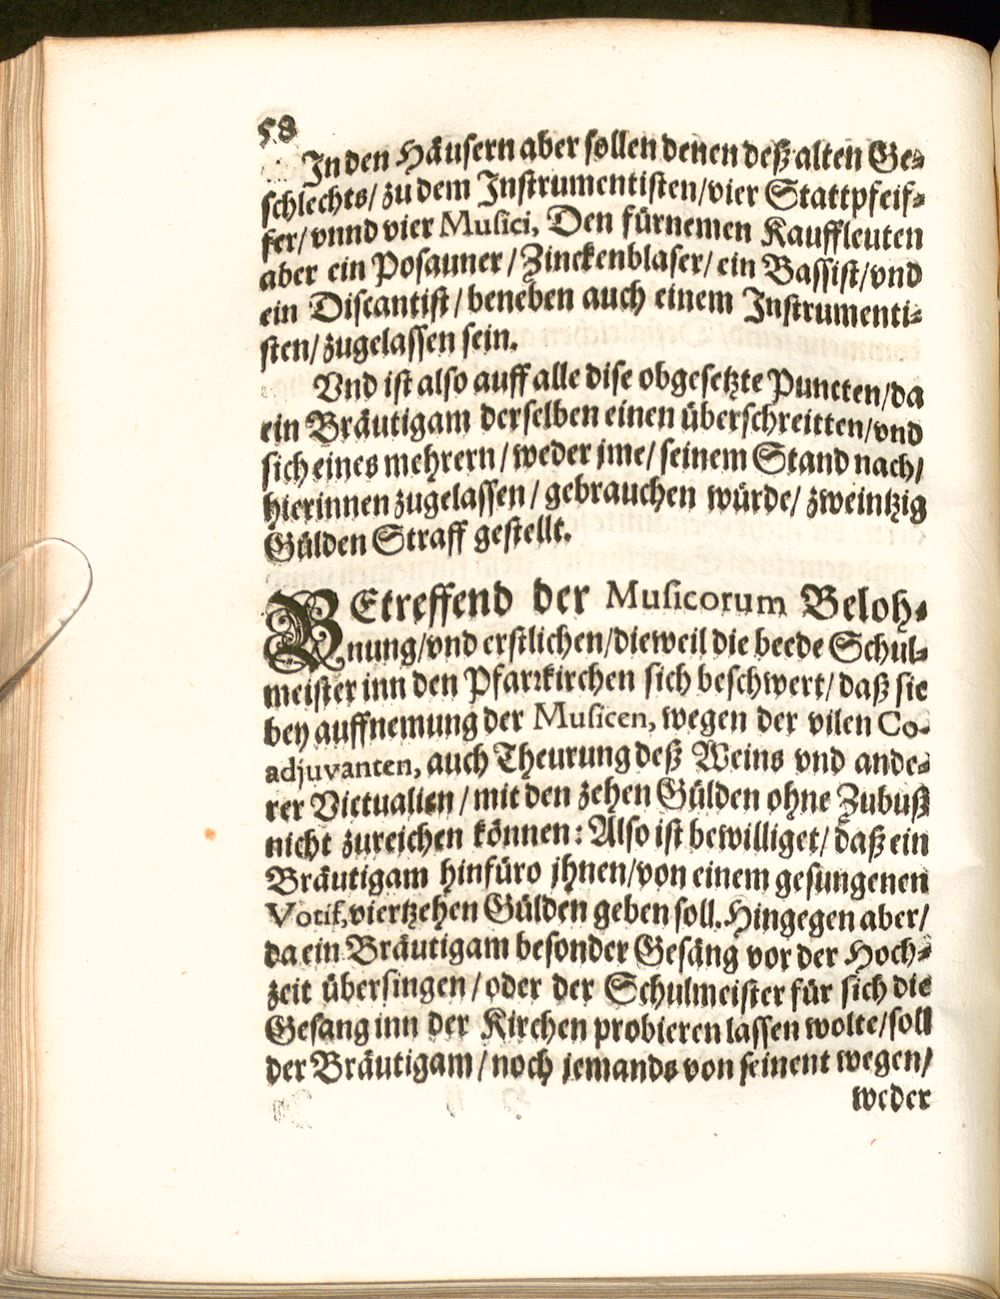 58
In den Häusern aber sollen denen deß alten Ge-
schlechts/ zu dem Instrumentisten/ vier Stattpfeif-
fer/ vnnd vier Musici, Den fürnemen Kauffleuten
aber ein Posauner/ Zinckenblaser/ ein Bassist/ vnd
ein Discantist/ beneben auch einem Instrumenti-
sten/ zugelassen sein.
Vnd ist also auff alle dise obgesetzte Puncten/ da
ein Bräutigam derselben einen überschreitten/ vnd
sich eines mehrern/ weder jme/ seinem Stand nach/
hierinnen zugelassen/ gebrauchen würde/ zweintzig
Gülden Straff gestellt.
BEtreffend der Musicorum Beloh-
nung/ vnd erstlichen/ dieweil die beede Schul-
meister inn den Pfarrkirchen sich beschwert/ daß sie
bey auffnemung der Musicen, wegen der vilen Co-
adjuvanten, auch Theurung deß Weins vnd ande-
rer Victualien/ mit den zehen Gülden ohne Zubuß
nicht zureichen können: Also ist bewilliget/ daß ein
Bräutigam hinfüro jhnen/ von einem gesungenen
Votif, viertzehen Gülden geben soll. Hingegen aber/
da ein Bräutigam besonder Gesäng vor der Hoch-
zeit übersingen/ oder der Schulmeister für sich die
Gesang inn der Kirchen probieren lassen wolte/ soll
der Bräutigam/ noch jemands von seinent wegen/
weder